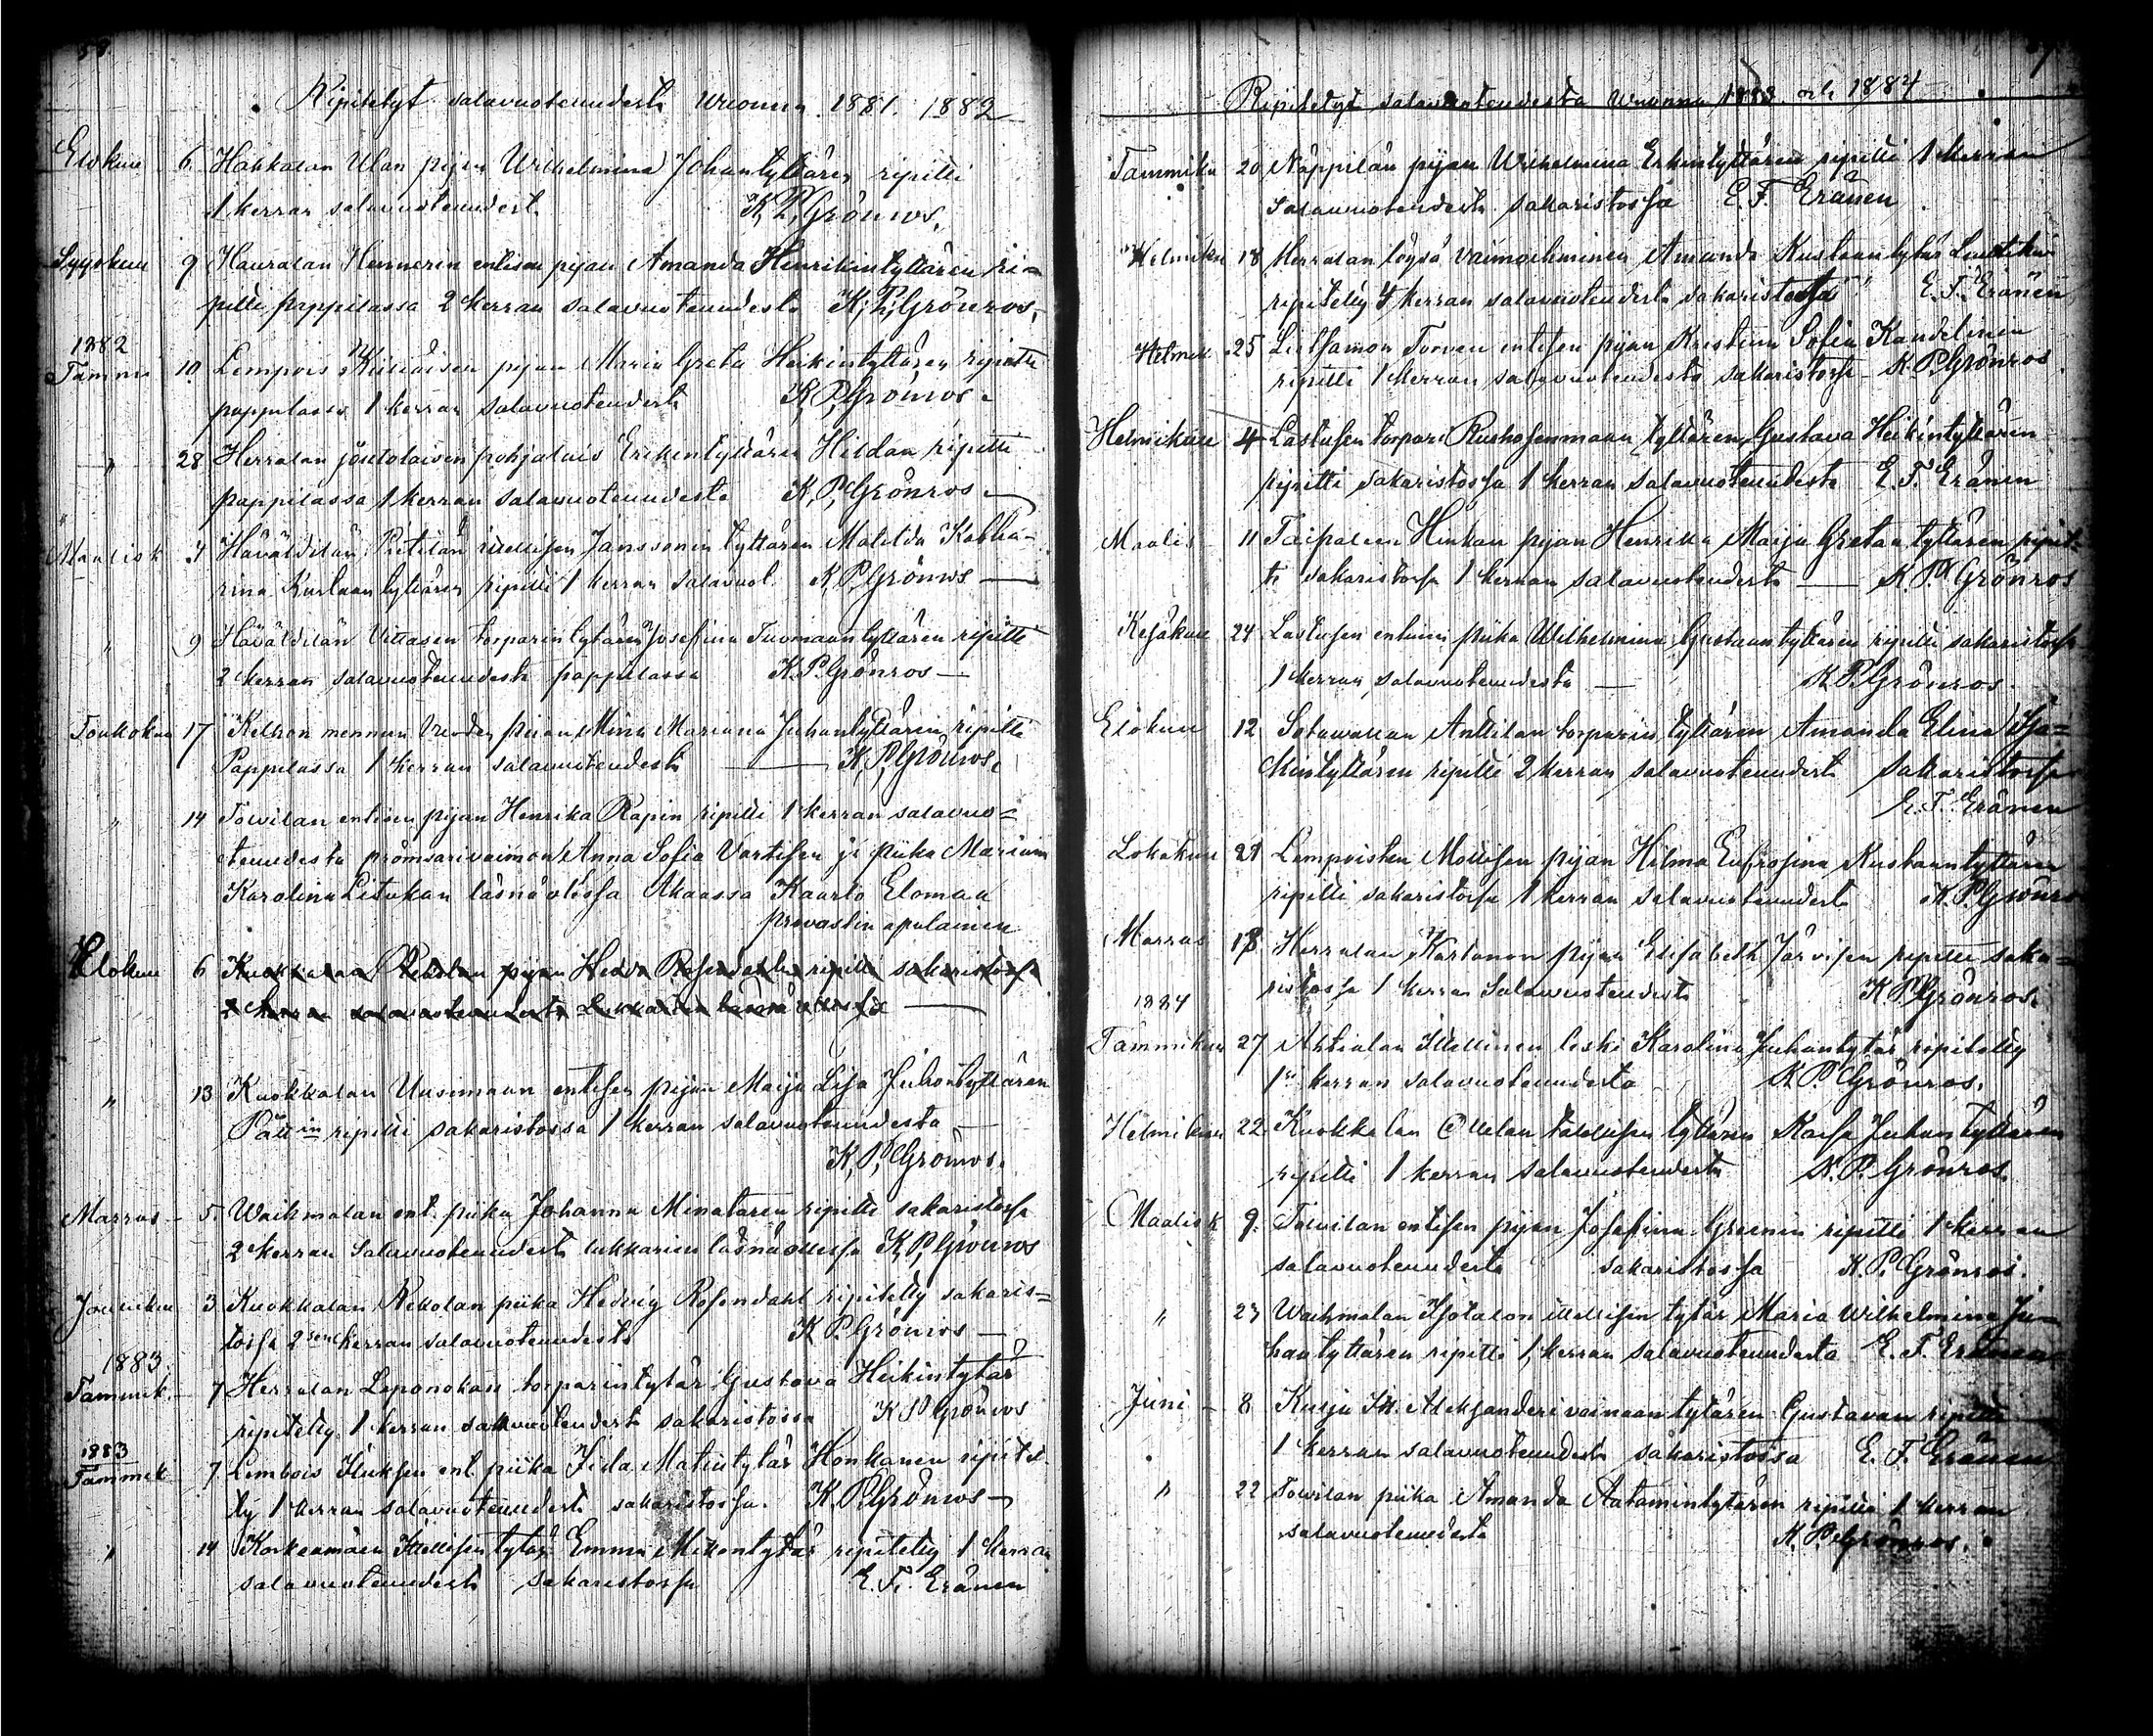 Ripitetyt salavuoteudesta vuonna 1881. 1882
Elokuu 6 Hakkalan Ulan pijan Wilhelmina Johantyttären ripitti
1 kerran salavuoteudest. K. P. Grönros.
Syyskuu 9 Hauralan Hennerin entisen pijan Amanda Henrikintyttären ri-
pitti pappilassa 2 kerran salavuoteudesta K. P. Grönros.
1882
Tammi 10 Lempois pijan Maria Greta Heikintyttären ripitti
pappilassa 1 kerran salavuoteudesta K. P. Grönros.
" 28 Herralan joutolaisen pohjalais Erikintyttären Hildan ripitti
pappilassa 1 kerran salavuoteudesta K. P. Grönros
Maalisk 4 itsellisen Janssonin tyttären Matilda Katha-
rina Kustaantyttären ripitti 1 kerran salavuot. K. P. Grönros
" 9 Uittasen torparin tytären Josefina Tuomaantyttären ripitti
2 kerran salavuoteudesta pappilassa K. P. Grönros
Toukokuu 17 pijan Mina Mariana Juhantyttären ripitti
Pappilassa 1 kerran salavuoteudesta K. P. Grönros.
" 14 Toivilan entisen pijan Henrika Rapin ripitti 1 kerran salavuo=
teudesta Anna Sofia Vartisen ja piika Mariana
Karolina läsnäolossa Akaassa Kaarlo Elomaa
provastin apulainen
Elokuu 6 Kuokkalan Rekolan pijan Hedda Rosendahlin ripitti sakaristossa
2 kerran salavuoteudesta Lukkarin läsnä ollessa
" 13 Kuokkalan Uusimaan entisen pijan Maija Lisa Juhontyttären
Pätt in ripitti sakaristossa 1 kerran salavuoteudesta
K. P. Grönros.
Marras 5. Waihmalan ent. piika Johanna Minataren ripitti sakaristossa
2 kerran salavuoteudesta lukkarin läsnäollessa K. P. Grönros
Jouluk 3 Kuokkalan Rekolan piika Hedvig Rosendahl ripitetty sakaris=
tossa 2 sen kerran salavuoteudesta K. P. Grönros
1883
Tammik. 7 Herralan Leponokan torparintytär Gustava Heikintytär
ripitetty 1 kerran salavuoteudesta sakaristossa K P Grönros
1883
Tammik 7 Lembois ent. piika Iida Matintytär Honkanen ripitet-
ty 1 kerran salavuoteudesta sakaristossa. K. P. Grönros
" 14 Korkeamäen Itsellisen tytär Emma Mikontytär ripitetty 1 kerran
salavuoteudesta sakaristossa E. F. Eränen
Ripitetyt salavuoteudesta vuonna 1883 och 1884
Tammiku 20 Näppilän pijan Wilhelmina Erkintyttären ripitti 1 kerran
salavuoteudesta sakaristossa E. F. Eränen
Helmiku 18 Herralan löysä vaimoihminen Amanda Kustaantytär
ripitetty 4 kerran salavuoteudesta sakaristossa E. F. Eränen
Helmik 25 entisen pijan Kristina Sofia Kandelinin
ripitti 1 kerran salavuoteudesta sakaristossa K. P. Grönros
Helmikuu 4 Lastusen torpari tyttären Gustava Heikintyttären
ripitti sakaristossa 1 kerran salavuoteudesta E. F. Eränen
Maalis 11 Taipaleen Hinkan pijan Henrika Maija Gretan tyttären ripit-
ti sakaristossa 1 kerran salavuoteudesta K. P. Grönros
Kesäkuu 24 Lastusen entinen piika Wilhelmina Gustaantyttären ripitti sakaristossa
1 kerran salavuoteudesta K P Grönros.
Elokuu 12 Sotavallan Anttilan torparin tyttären Amanda Elina Isa=
kintyttären ripitti 2 kerran salavuoteudesta sakaristossa
E. F. Eränen
Lokakuu 21 Lempoisten Mollisen pijan Hilma Eufrosina Kustaantyttären
ripitti sakaristossa 1 kerran salavuoteudesta K. P. Grönros
Marras 18 Herralan Kartanon pijan Elisabeth Järvisen ripitti saka=
ristossa 1 kerran salavuoteudesta K P Grönros.
1884
Tammikuu 27 Ahtialan Itsellinen leski Karolina Juhantytär ripitetty
1 kerran salavuoteudesta K. P. Grönros.
Helmikuu 22 Kuokkalan Ollilan itsellisen tyttären Kaisa Juhantyttären
ripitti 1 kerran salavuoteudesta K. P. Grönros.
Maalisk 9. Toivilan entisen pijan Josefina Greenin ripitti 1 kerran
salavuoteudesta sakaristossa K. P. Grönros.
" 23 Waihmalan Isotalon itsellisen tytär Maria Wilhelmina Ju-
hantyttären ripitti 1 kerran salavuoteudesta E. F. Eränen
Juni 8 Aleksanderi vainaan tytären Gustavan ripitti
1 kerran salavuoteudesta sakaristossa E. F. Eränen
" 22 Toivilan piika Amanda Aatamintytären ripitti 1 kerran
salavuoteudesta K. P. Grönros.